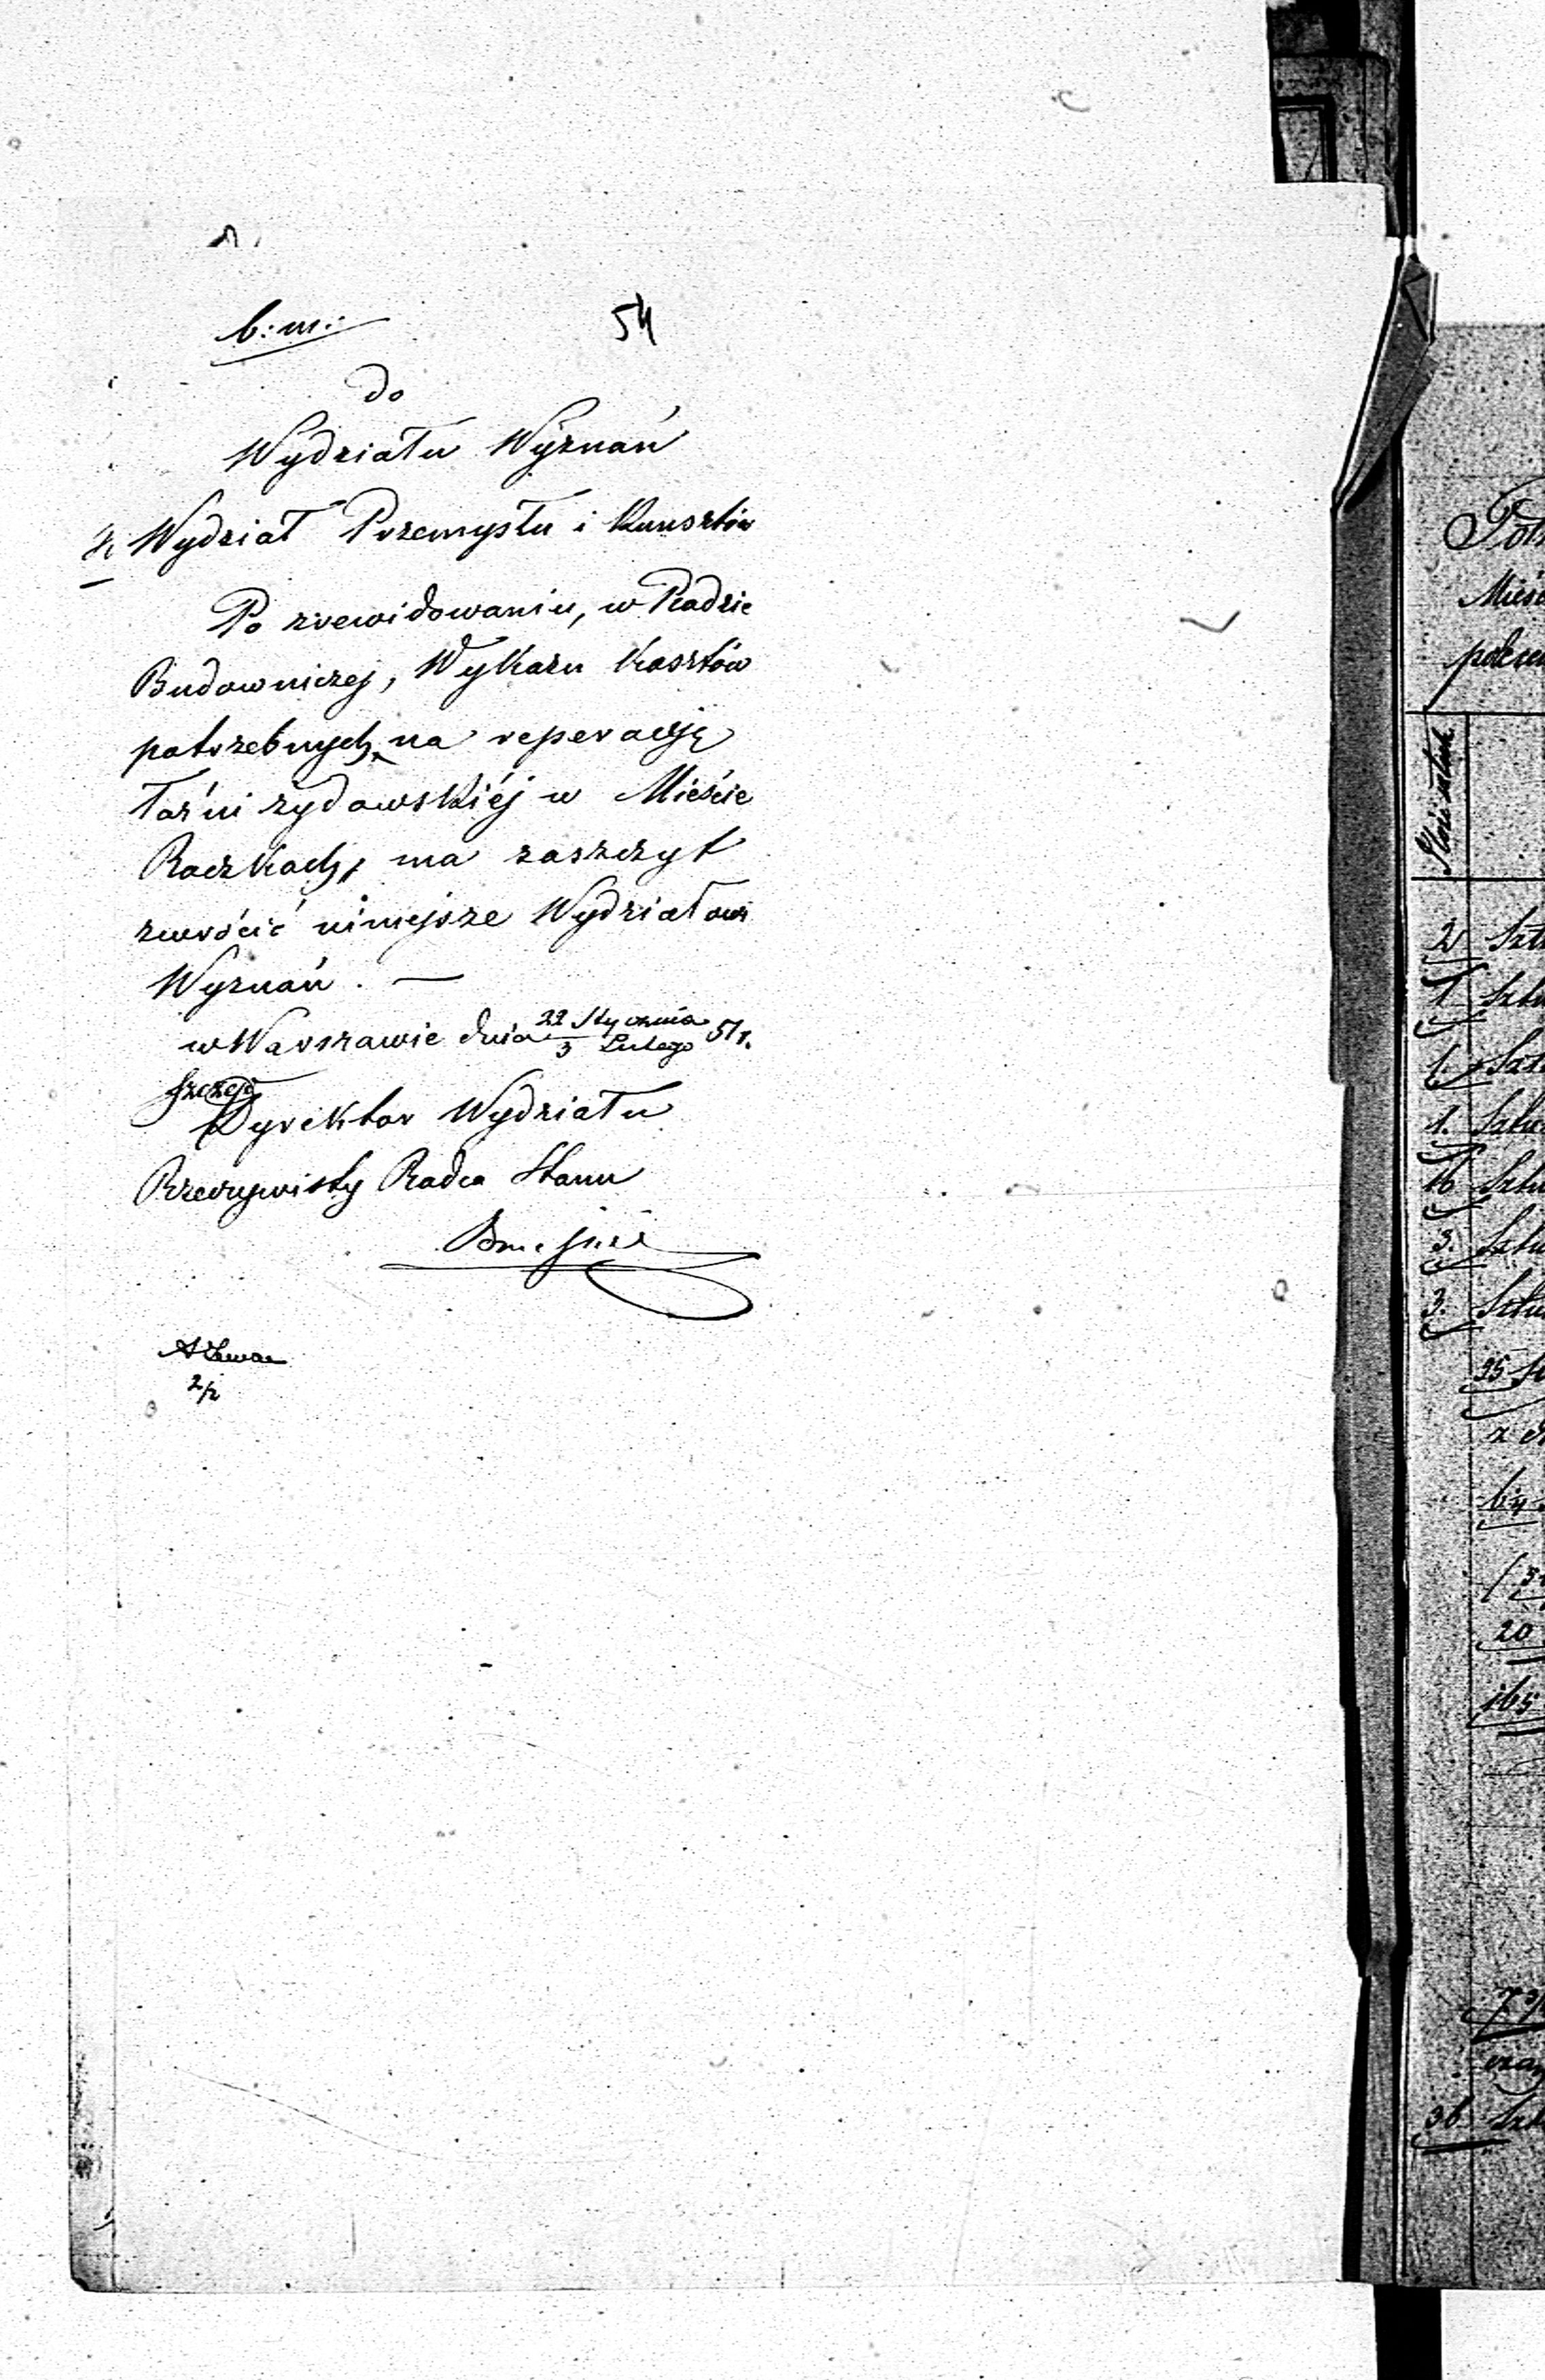 b: m:
54
do
Wydziału Wyznań
Wydział Przemysłu i Kunsztów
Po zrewidowaniu, w Radzie
Budowniczej, Wykazu kosztów
potrzebnych na reperacyję
łaźni żydowskiéj w Mieście
Raczkach, ma zaszczyt
zwrócić niniejsze Wydziałowi
Wyznań. —
w Warszawie dnia 22 Stycznia / 3 Lutego 51 r.
Dyrektor Wydziału
Rzeczywisty Radca Stanu
2/2
Mieś
2 Szt
1 Sztu
1. Szt
1. Sztu
16 Sztu
3. Sztu
3. Sztu
20
36 Szt